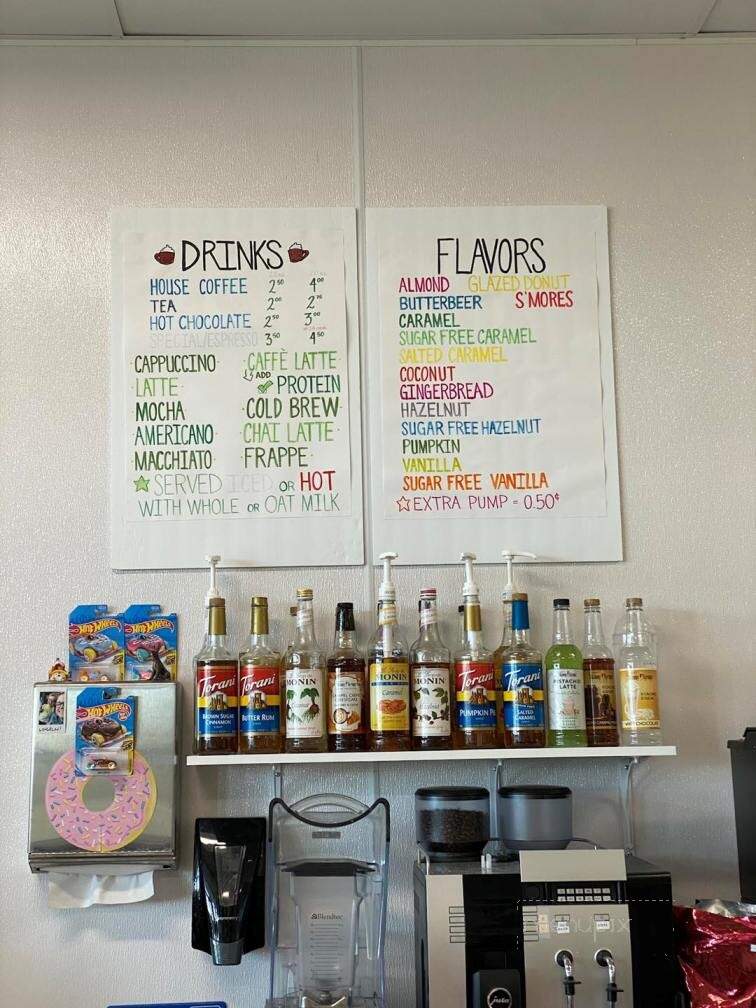 DRINKS
HOUSE COFFEE 2⁵⁰ 4⁰⁰
TEA 2⁰⁰
HOT CHOCOLATE 2⁵⁰ 3⁰⁰
SPECIAL/ESPRESSO 3⁵⁰ 4⁵⁰
CAPPUCCINO
LATTE
MOCHA
AMERICANO
MACCHIATO
CAFFÈ LATTE
ADD PROTEIN
COLD BREW
CHAI LATTE
FRAPPE
SERVED ICED OR HOT
WITH WHOLE OR OAT MILK
FLAVORS
ALMOND GLAZED DONUT
BUTTERBEER S'MORES
CARAMEL
SUGAR FREE CARAMEL
SALTED CARAMEL
COCONUT
GINGERBREAD
HAZELNUT
SUGAR FREE HAZELNUT
PUMPKIN
VANILLA
SUGAR FREE VANILLA
EXTRA PUMP = 0.50¢
Hot Wheels
Hot Wheels
Hot Wheels
Torani
BROWN SUGAR
CINNAMON
Torani
BUTTER RUM
MONIN
Coconut
MONIN
Caramel
MONIN
Hazelnut
Torani
PUMPKIN PIE
Torani
SALTED
CARAMEL
PISTACHIO
LATTE
WHITE CHOCOLATE
Blendtec
jura